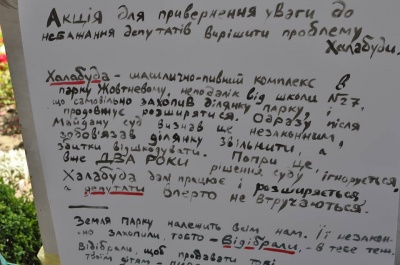 Акція для привернення уваги до
небажання депутатів вирішити проблему
Халабуди.
Халабуда - шашлично-пивний комплекс в
парку Жовтневому, неподалік від школи №27,
що самовільно захопив ділянку парку, і
продовжує розширяться. Одразу після
Майдану суд визнав це незаконним,
зобов'язав ділянку звільнити, а
збитки відшкодувати. Попри це,
вже ДВА РОКИ рішення суду ігнорується,
Халабуда далі працює і розширяється,
а депутати вперто не втручаються.
Земля парку належить всім нам. Її незакон-
но захопили, тобто - відібрали, - в тебе теж.
Відібрали, щоб продавати тобі
твоїм дітям -